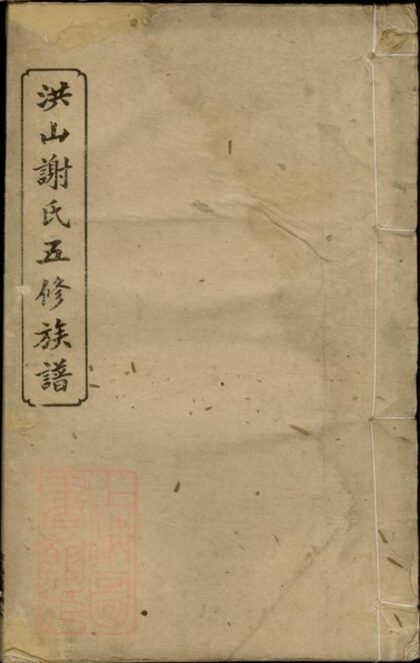 洪山謝氏五修族譜